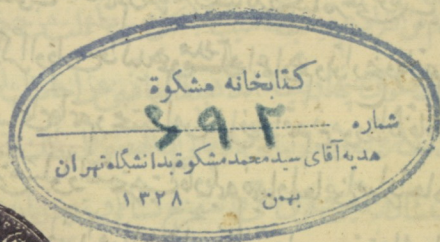 کتابخانه مشکوة
شماره ۶۹۲
هدیه آقای سید محمد مشکوة بدانشگاه تهران
بهمن ۱۳۲۸